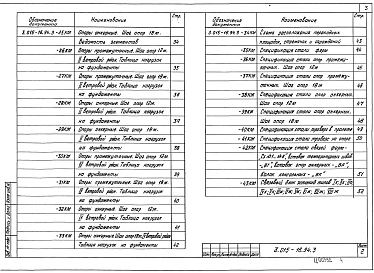 3
Обозначение документа
Наименование
Стр.
3.015-16.94.3 -25КМ
Опоры анкерные. Шаг опор 18м.
Ведомость элементов
34
-26КМ
Опоры промежуточные. Шаг опор 12м.
II ветровой район. Таблица нагрузок
на фундаменты
35
-27КМ
Опоры промежуточные. Шаг опор 18м.
II ветровой район. Таблица нагрузок
на фундаменты
36
-28КМ
Опоры анкерные. Шаг опор 12м.
II ветровой район. Таблица нагрузок
на фундаменты
37
-29КМ
Опоры анкерные. Шаг опор 18м.
II ветровой район. Таблица нагрузок
на фундаменты
38
Опоры промежуточные. Шаг опор 12м.
ветровой район. Таблица нагрузок
на фундаменты
39
-31КМ
Опоры промежуточные. Шаг опор 18м.
ветровой район. Таблица нагрузок
на фундаменты
40
-32КМ
Опоры анкерные. Шаг опор 12м.
ветровой район. Таблица нагрузок
на фундаменты
41
-33КМ
Опоры анкерные. Шаг опор 18м.
Таблица нагрузок на фундаменты
42
Обозначение документа
Наименование
Стр.
3.015-16.94.3 -34КМ
Схема расположения переходных
площадок, стремянок и ограждений
43
-35КМ
Спецификация стали ферм
44
-36КМ
Спецификация стали опор промежу-
точных. Шаг опор 12м
-37КМ
Спецификация стали опор промежу-
точных. Шаг опор 18м
46
-38КМ
Спецификация стали опор анкерных.
Шаг опор 12м
47
-39КМ
Спецификация стали опор анкерных.
Шаг опор 18м
48
-40КМ
Спецификация стали траверс в пролете
49
-41КМ
Спецификация стали траверс на опоре
50
-42КМ
Спецификация стали связей ферм
51
-43КМ
52
3.015-16.94.3
Лист
2